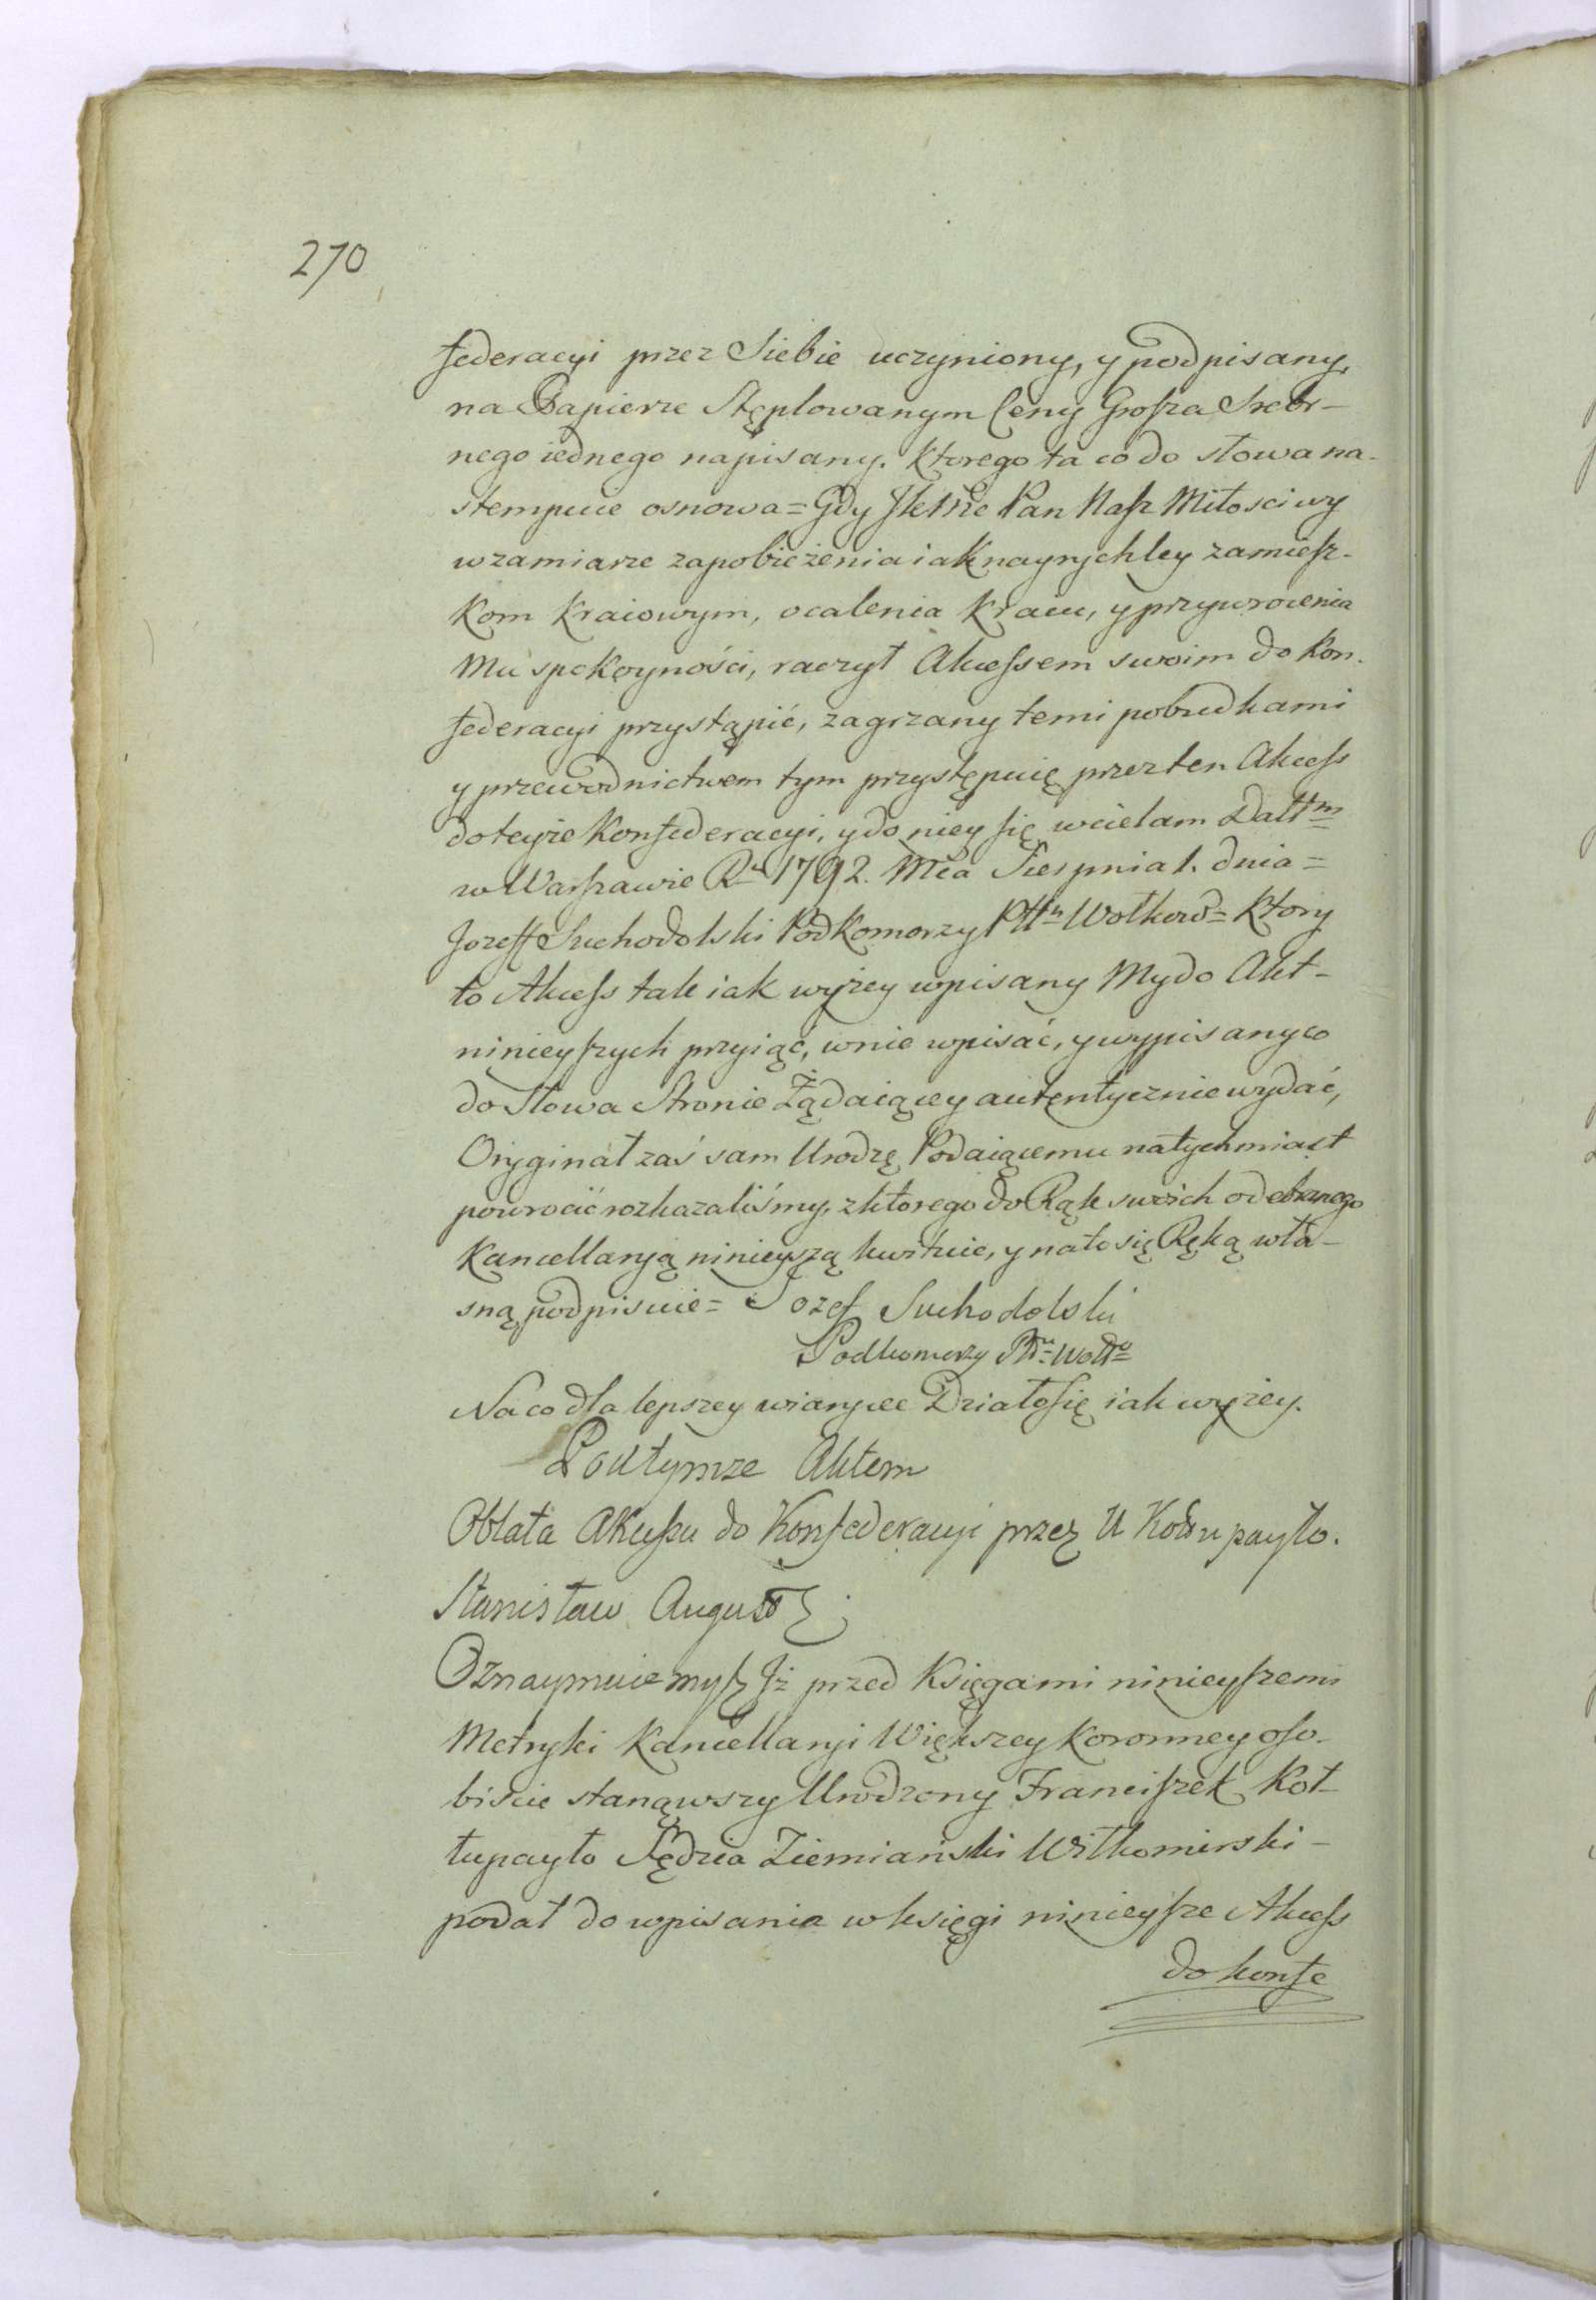 270
federacyi przez Siebie uczyniony, y podpisany,
na Papierze Stęplowanym Ceny Grosza Srebr-
nego iednego napisany. Ktorego ta co do słowa na-
stempuie osnowa = Gdy JKMć Pan Nasz Miłosciwy
w zamiarze zapobieżenia iak nayrychley zamiesz-
kom kraiowym, ocalenia kraiu, y przywrocenia
Mu spokoyności, raczył Akcessem swoim do Kon-
federacyi przystąpić, zagrzany temi pobudkami
y przewodnictwem tym przystępuię przez ten Akcess
do teyże Konfederacyi, y do niey się wcielam Datt m
w Warszawie Ru 1792. Mca Sierpnia 1. dnia =
Jozeff Suchodolski Podkomorzy Pttu Wołkow = Ktory
to Akcess tak iak wyżey wpisany My do Akt-
ninieyszych przyiąć, w nie wpisać, y wypisany co
do Słowa Stronie Żądaiącey autentycznie wydać,
Oryginał zaś sam Urodzę Podaiącemu natychmiast
powrocić rozkazaliśmy, z ktorego do Rąk swoich odebranego
Kancellaryą ninieyszą kwituie, y na to się Ręką wła-
sną podpisuie = Jozef Suchodolski
Podkomorzy Ptu Wołko
Na co dla lepszey wiary ec Działo się iak wyżey.
Pod tymze Aktem
Oblata Akcessu do Konfederacyi przez U Kołłupayło.
Stanisław August
Oznaymuiemy Jż przed Księgami ninieyszemi
Metryki Kancellaryi Większey Koronney oso-
biscie stanąwszy Urodzony Franciszek Koł-
łupayło Sędzia Ziemiański Wiłkomirski -
podał do wpisania w księgi ninieysze Akcess
do konfe